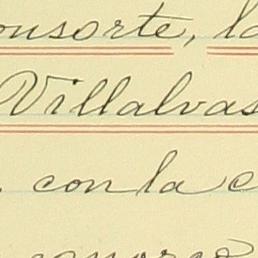 onsorte, la
Villalvas
con la c